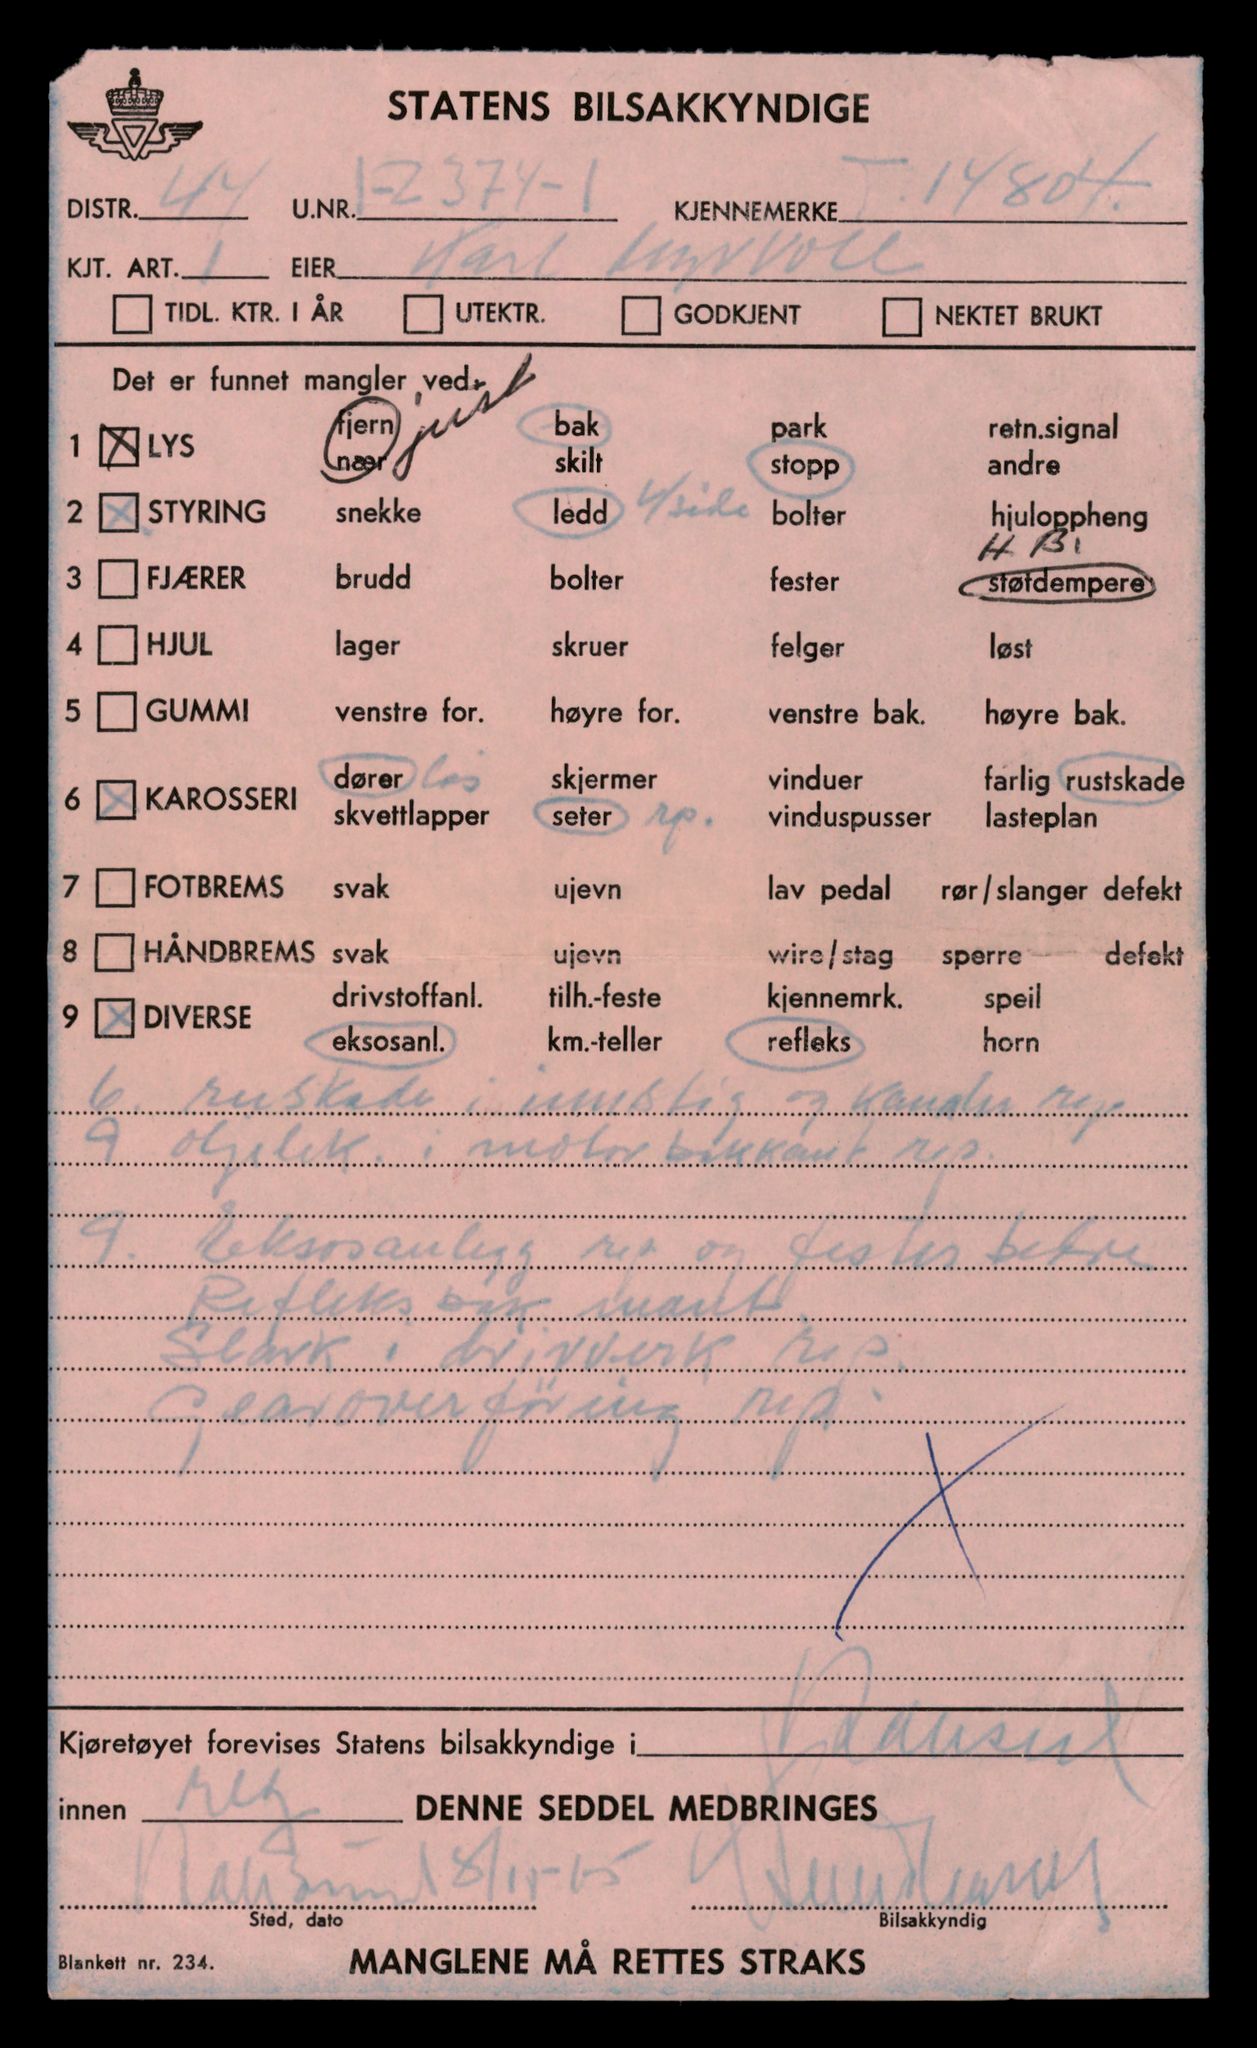 STATENS BILSAKKYNDIGE
DISTR. 44 U.NR. 1-2374-1 KJENNEMERKE T. 14804.
KJT. ART. 1 EIER Karl Myrvoll
TIDL. KTR. I ÅR UTEKTR. GODKJENT NEKTET BRUKT
Det er funnet mangler ved: just
1 X LYS fjern bak park retn.signal
nær skilt stopp andre
2 X STYRING snekke ledd v/side bolter hjuloppheng
H B.
3 FJÆRER brudd bolter fester støtdempere
4 HJUL lager skruer felger løst
5 GUMMI venstre for. høyre for. venstre bak. høyre bak.
6 X KAROSSERI dører lås skjermer vinduer farlig rustskade
skvettlapper seter rp. vinduspusser lasteplan
7 FOTBREMS svak ujevn lav pedal rør/slanger defekt
8 HÅNDBREMS svak ujevn wire/stag sperre defekt
9 X DIVERSE drivstoffanl. tilh.-feste kjennemrk. speil
eksosanl. km.-teller refleks horn
6. ruskade i innstig og kanaler rep
9 oljelek. i motor bakkant rep.
9. Eksosanlegg rep og festes bedre
Refleks bak mont.
Slark i drivverk rep.
Gearoverföring rep.
Kjøretøyet forevises Statens bilsakkyndige i
innen rep DENNE SEDDEL MEDBRINGES
8/11-65
Sted, dato Bilsakkyndig
Blankett nr. 234. MANGLENE MÅ RETTES STRAKS